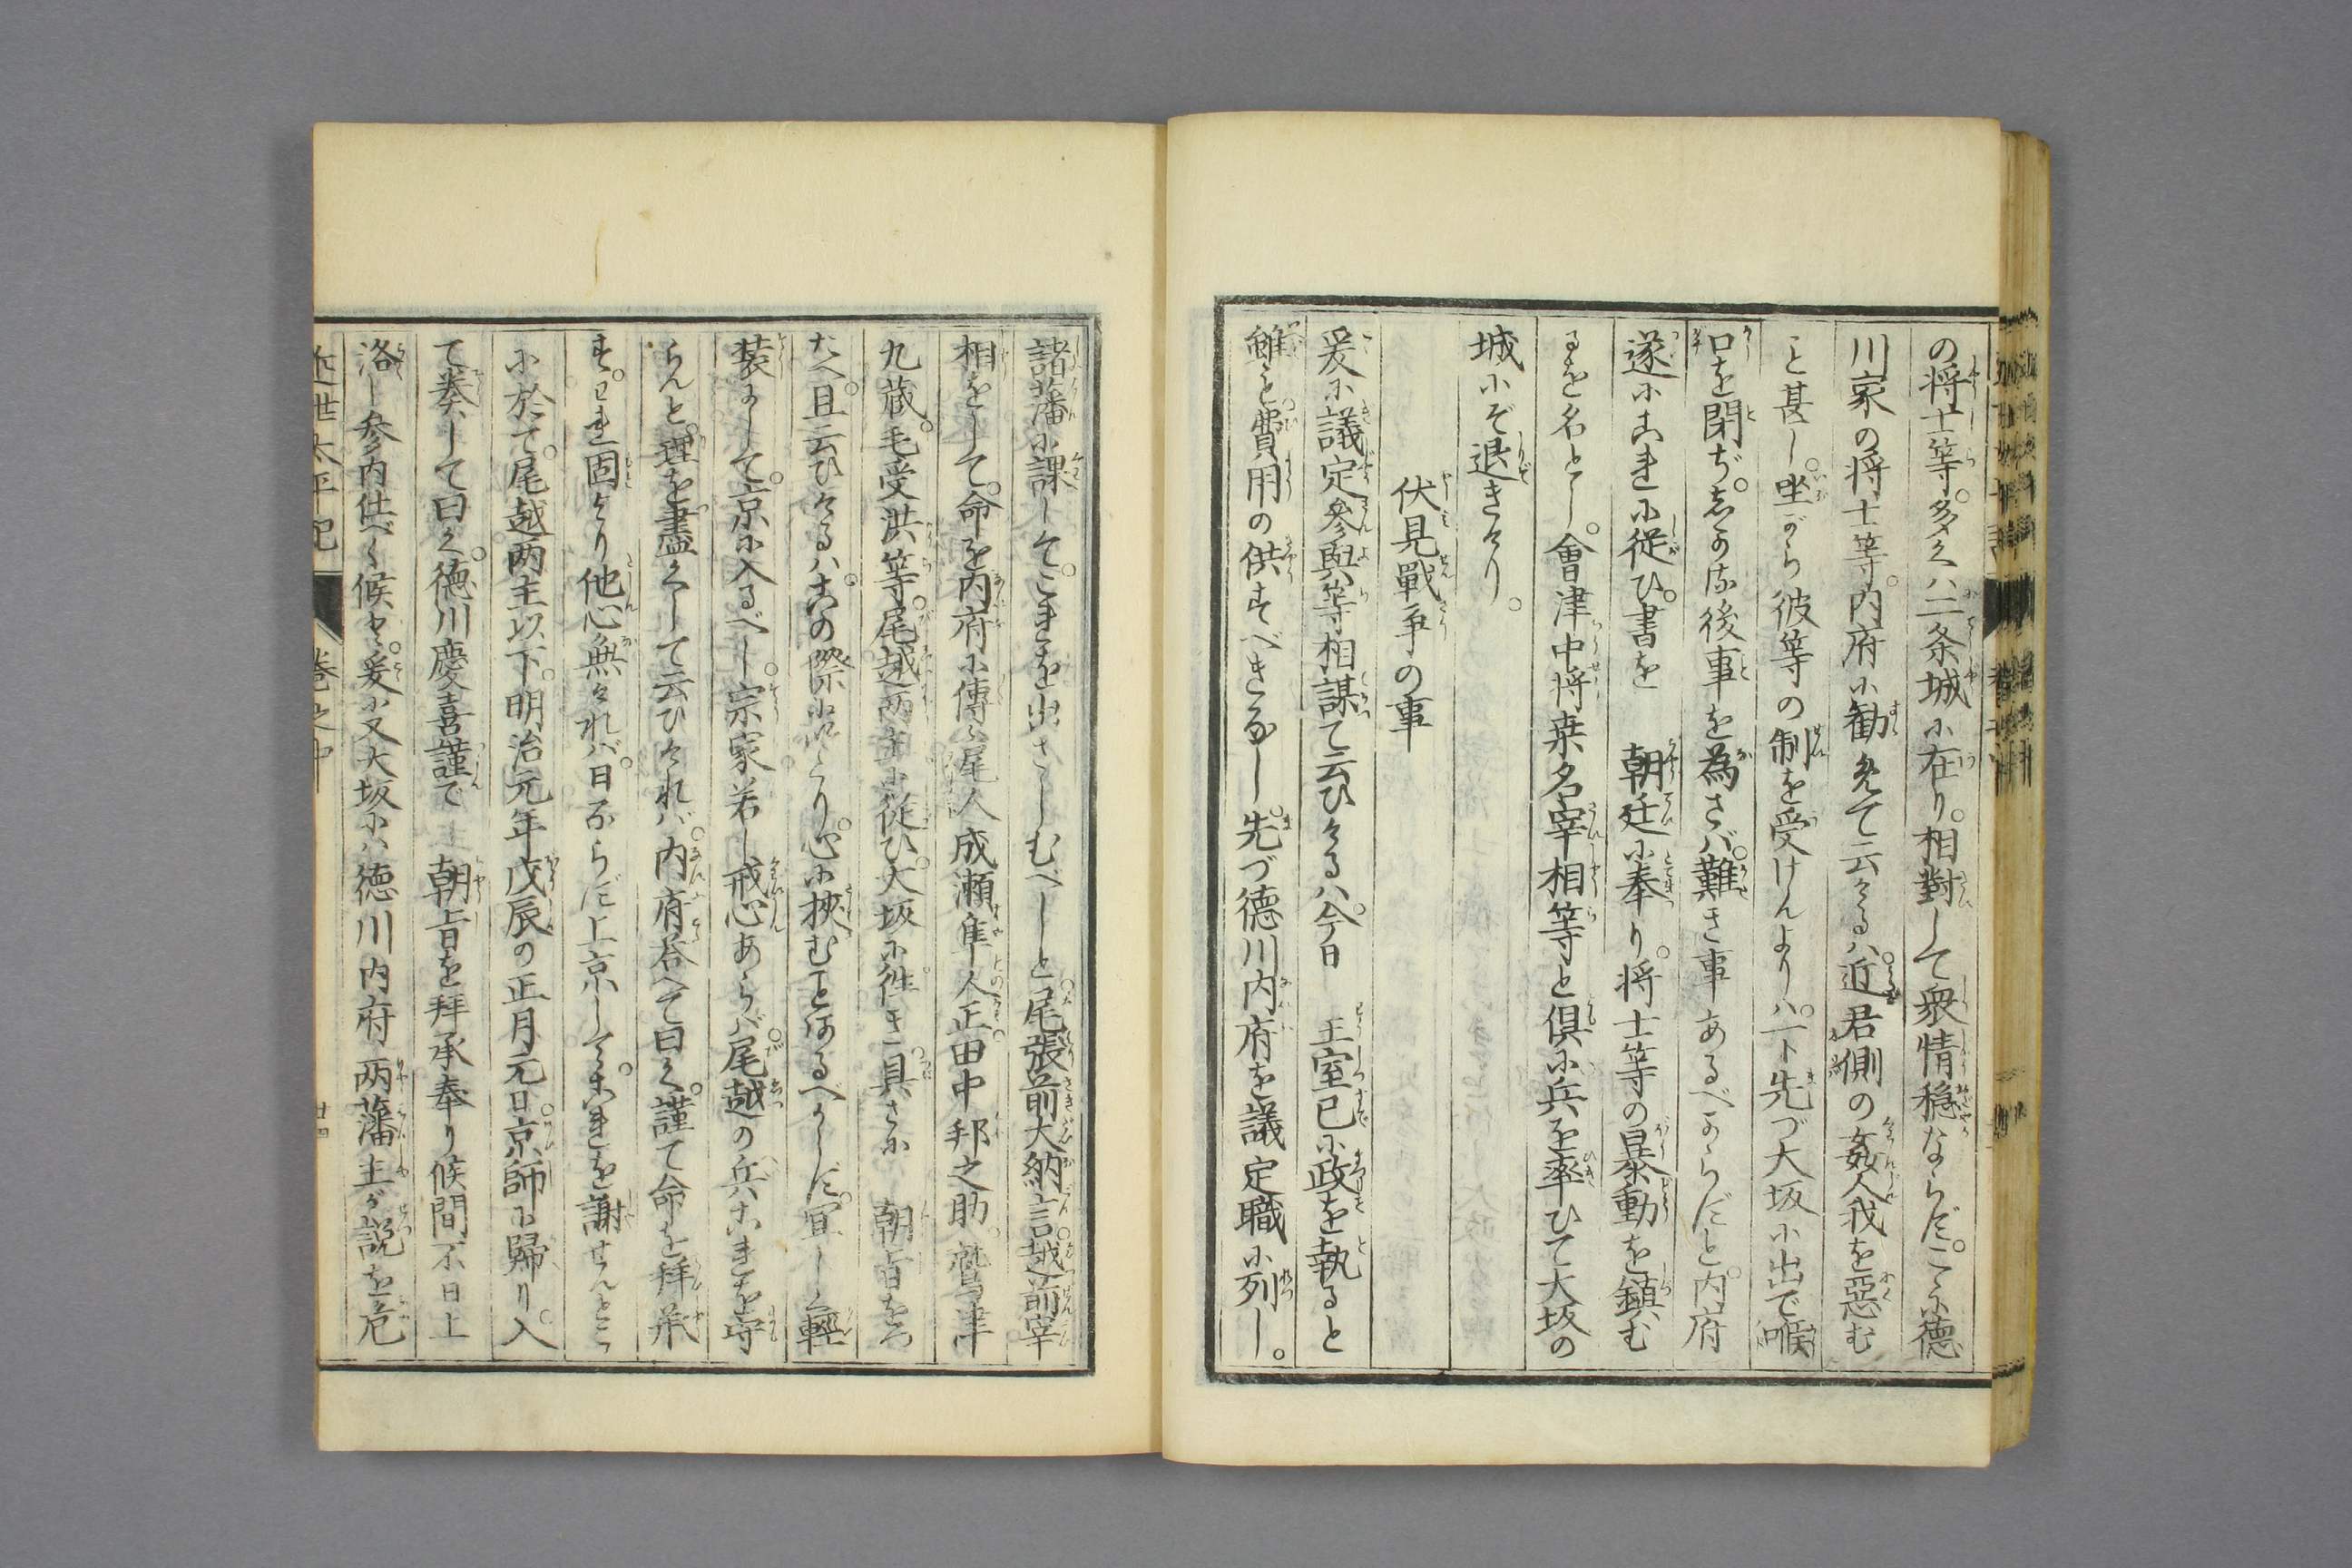 の将士等。多くハ二条城に在り。相對して衆情穏ならだ。こゝに德
川家の将士等。内府に勸めて云けるハ。近君側の姦人我を惡む
こと甚し。坐がら彼等の制を受けんよりハ。一ト先づ大坂に出で喉
口を閉ぢ。志かる後事を為さバ。難き事あるべからだと。内府
遂にこれに従ひ。書を 朝廷に奉り。将士等の暴動を鎮む
るを名とし。會津中将桒名宰相等と倶に兵を率ひて大坂の
城にぞ退きけり。
伏見戰争の事
爰に議定參與等相謀て云ひけるハ。今日 王室已に政を執ると
雖も費用の供すべきなし。先づ德川内府を議定職に列し。
諸藩に課して。これを出さしむべしと。尾張前大納言。越前宰
相をして。命を内府に傳ふ。尾人成瀬隼人正。田中邦之助。鷲津
九蔵。毛受洪等。尾越両主に従ひ。大坂に徃き。具さに 朝旨を
たへ。且云ひけるハ。この際に
心に挾むことあるべからだ。宜しく輕
装にして。京に入るべし。宗家若し戒心あらバ。尾越の兵これを守
らんと。理を盡くして云ひければ。内府荅へて曰く。謹て命を拜承
す。われ固より他心無ければ。日ならだ上京して。これを謝せんとこゝ
に於て。尾越両主以下。明治元年戊辰の正月元日。京師に歸り。入
て奏して曰く。德川慶喜謹で 朝旨を拜承奉り候間。不日上
洛し參内仕べく候と。爰に又大坂にハ德川内府両藩主が説を危
近世太平記 巻之中 廿四